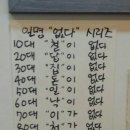 인생 "없다" 시리즈
10대 "철"이 없다
20대 "답"이 없다
30대 "집"이 없다
40대 "돈"이 없다
50대 "일"이 없다
60대 "낙"이 없다
70대 "이"가 없다
80대 "처"가 없다